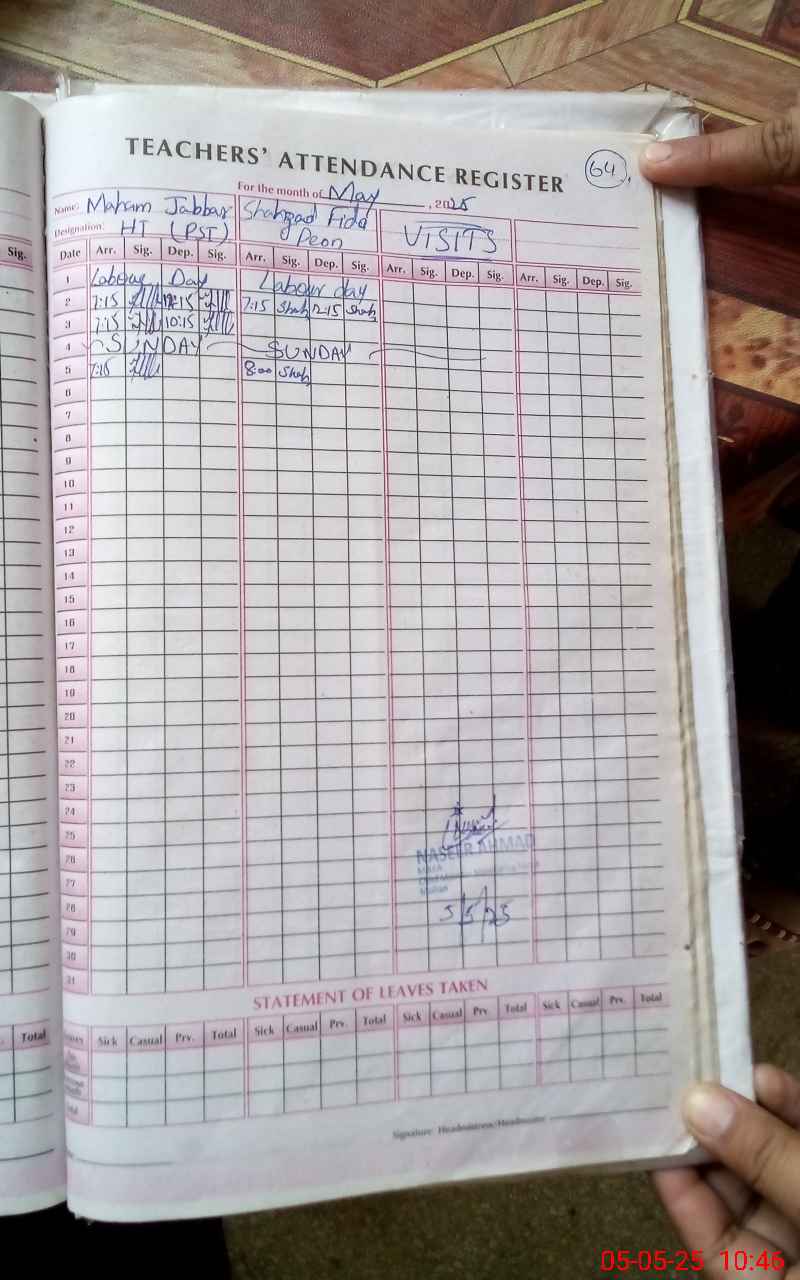 TEACHERS' ATTENDANCE REGISTER
64
For the month of May, 2025
Name: Maham Jabbar Shahzad Fida VISITS
Designation: HT (PST) Peon
Sig.
Date Arr. Sig. Dep. Sig. Arr. Sig. Dep. Sig. Arr. Sig. Dep. Sig. Arr. Sig. Dep. Sig.
1 Labour Day Labour day
2 7:15 12:15 7:15 Shah 12:15 Shah
3 7:15 10:15
4 SUNDAY SUNDAY
5 7:15 8:00 Shah
6
7
8
9
10
11
12
13
14
15
16
17
18
19
20
21
22
23
24
25
26
27
28
29
30
31
NASEER AHMAD
5/5/25
STATEMENT OF LEAVES TAKEN
Total
Sick Casual Prv. Total Sick Casual Prv. Total Sick Casual Prv. Total Sick Casual Prv. Total
Total
Signature: Headmistress/Headmaster
05-05-25 10:46